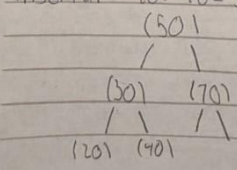 (50)
/ \
(30) (70)
/ \ / \
(20) (40)